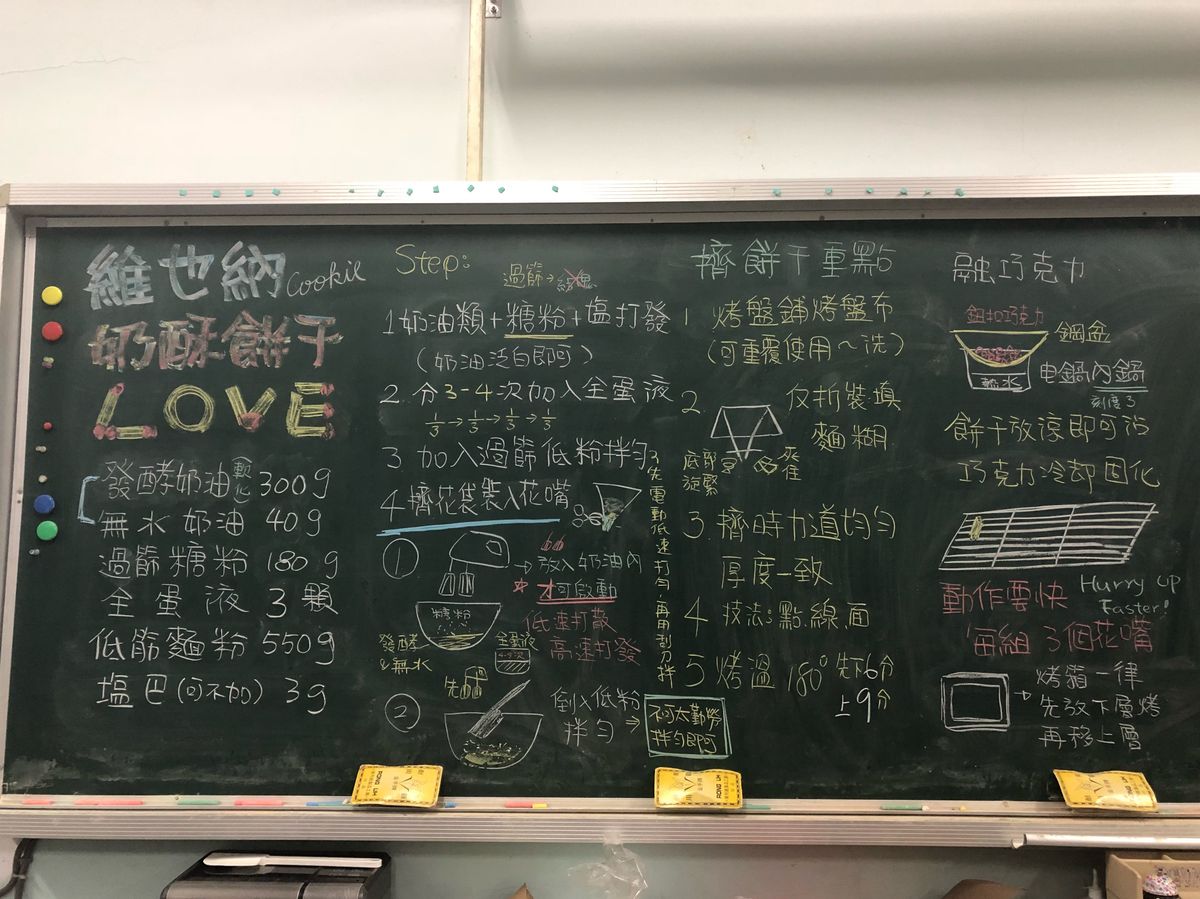 維也納 Cookie
奶酥餅干
LOVE
發酵奶油(軟化) 300g
無水奶油 40g
過篩糖粉 180g
全蛋液 3顆
低筋麵粉 550g
塩巴(可不加) 3g
Step:
過篩→結塊
1 奶油類+糖粉+塩打發
(奶油泛白即可)
2. 分3-4次加入全蛋液
1/3→1/3→1/3→1/3
3. 加入過篩低粉拌勻
4. 擠花袋裝入花嘴
①
→放入奶油內
才可啟動
低速打散
高速打發
糖粉
發酵
&無水
全蛋液
先
②
倒入低粉
拌勻→
不可太勤勞
拌勻即可
3先電動低速打勻再用刮刀拌
擠餅干重點
1. 烤盤鋪烤盤布
(可重覆使用~洗)
2. 反折裝填
麵糊
底部
旋緊
夾住
3. 擠時力道均勻
厚度一致
4 技法:點.線.面
5 烤溫 180° 先下6分
上9分
融巧克力
鈕扣巧克力
鋼盆
熱水
电鍋內鍋
刻度3
餅干放涼即可沾
巧克力冷却固化
動作要快 Hurry up
Faster!
每組 3個花嘴
→烤箱一律
先放下層烤
再移上層